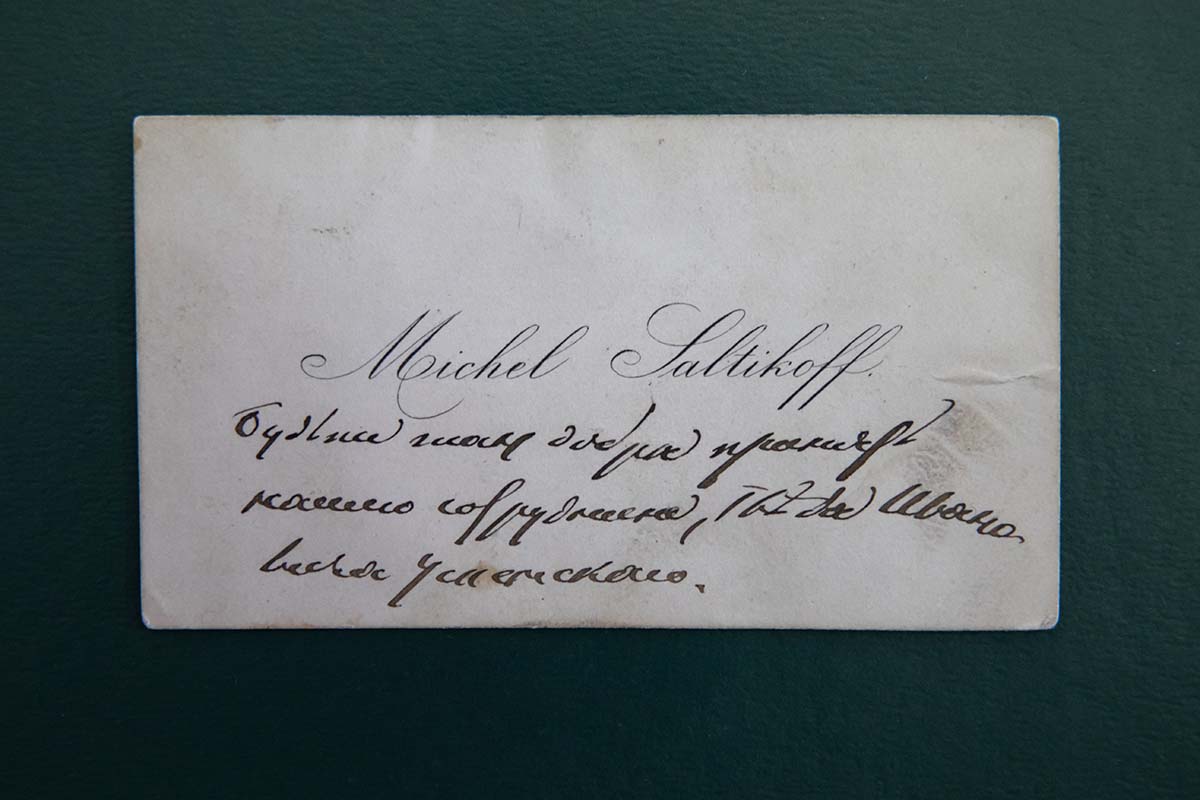 Michel Saltikoff.
Будьте так добры принять
нашего сотрудника, Глеба Ивано-
вича Успенского.